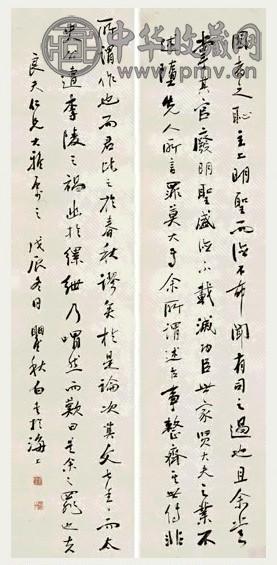 中华收藏网
國者之恥主上明聖而德不布聞有司之過也且余嘗
掌其官廢明聖盛德不載滅功臣世家賢大夫之業不
述墮先人所言罪莫大焉余所謂述故事整齊其世傳非
所謂作也而君比之於春秋謬矣於是論次其文七年而太
史公遭李陵之禍幽於縲紲乃喟然而歎曰是余之罪也夫
良夫仁兄大雅屬之 戊辰冬日 瞿秋白書於海上